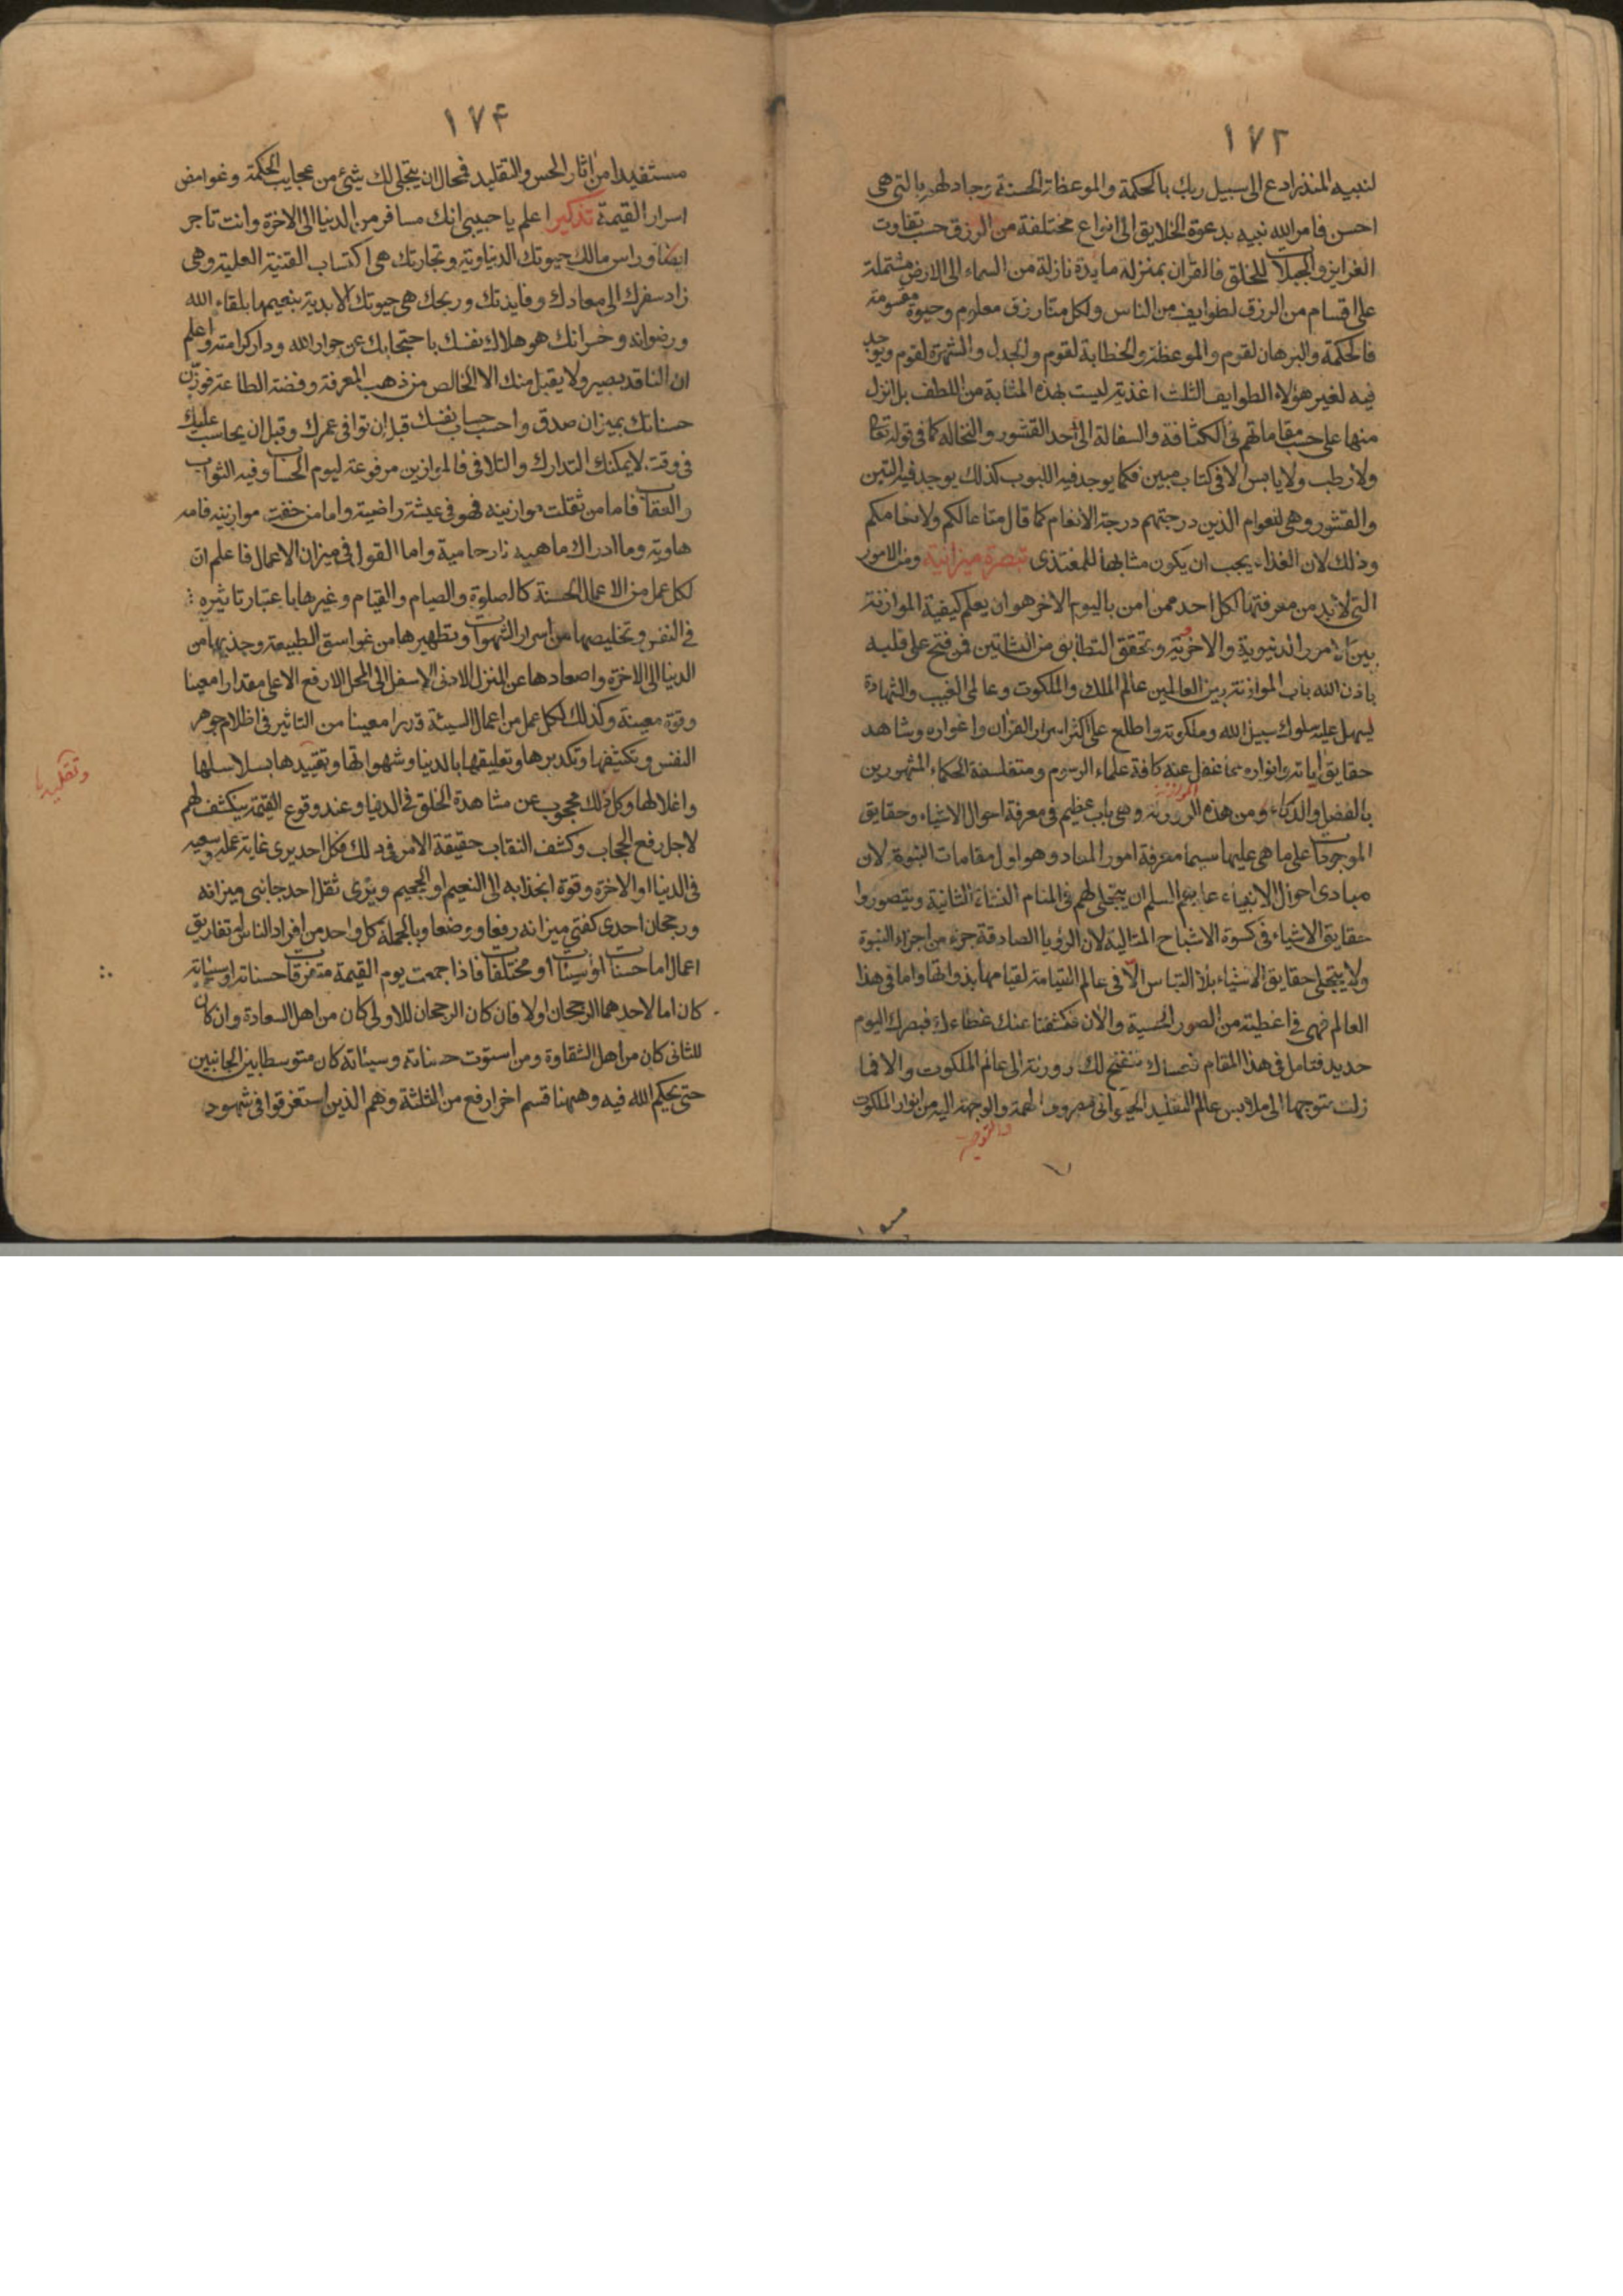 ١٧٣
لنبيه المنذر ادع الى سبيل ربك بالحكمة والموعظة الحسنة وجادلهم بالتى هى
احسن فامر الله نبيه بدعوة الخلايق الى انواع مختلفة من الرزق حسب تفاوت
الغرايز والجبلات للخلق فالقران بمنزلة مايدة نازلة من السماء الى الارض مشتملة
على اقسام من الرزق لطوايف من الناس ولكل منا رزق معلوم وحيوة مقسومة
فالحكمة والبرهان لقوم والموعظة والخطابة لقوم والجدل والشهرة لقوم ويوجد
فيه لغير هؤلاء الطوايف الثلث اغذية ليست بهذه المثابة من اللطف بل انزل
منها على حسب مقاماتهم فى الكثافة والسفالة الى حد القشور والنخالة كما فى قوله تعالى
ولا رطب ولا يابس الا فى كتاب مبين فكما يوجد فيه اللبوب كذلك يوجد فيه التبن
والقشور وهى لعوام الذين درجتهم درجة الانعام كما قال متاعا لكم ولانعامكم
وذلك لان الغذاء يجب ان يكون مشابها للمغتذى تبصرة ميزانية ومن الامور
التى لابد من معرفتها لكل احد ممن امن باليوم الاخر هو ان يعلم كيفية الموازنة
بين الامور الدنيوية والاخروية وتحقق التطابق من النشاتين فمن فتح على قلبه
باذن الله باب الموازنة بين العالمين عالم الملك والملكوت وعالمى الغيب والشهادة
يسهل عليه سلوك سبيل الله وملكوته واطلع على اكثر اسرار القران واغواره وشاهد
حقايق اياته وانواره مما غفل عنه كافة علماء الرسوم ومتفلسفة الحكماء المشهورين
بالفضل والذكاء ومن هذه الموازنة وهى باب عظيم فى معرفة احوال الاشياء وحقايق
الموجودات على ما هى عليها سيما معرفة امور المعاد وهو اول مقامات النبوة لان
مبادى احوال الانبياء عليهم السلم ان يتجلى لهم فى المنام النشاة الثانية ويتصوروا
حقايق الاشياء فى كسوة الاشباح المثالية لان الرؤيا الصادقة جزء من اجزاء النبوة
ولا يتجلى حقايق الاشياء بلا التباس الا فى عالم القيامة لقيامها بذواتها واما فى هذا
العالم فهى فى اغطية من الصور الحسية والان فكشفنا عنك غطاءك فبصرك اليوم
حديد فتامل فى هذا المقام عساك تنفتح لك روزنة الى عالم الملكوت والا فما
زلت متوجها الى ملابس عالم التقليد الحيوانى مصروف الهمة والوجهة اليه من انوار الملكوت
والتوجه
١٧۴
مستفيدا من اثار الحس والتقليد فمحال ان يتجلى لك شىء من عجايب الحكمة وغوامض
اسرار القيمة تذكير اعلم يا حبيبى انك مسافر من الدنيا الى الاخرة وانت تاجر
ايضا وراس مالك حيوتك الدنياوية وتجارتك هى اكتساب القنية العلمية وهى
زاد سفرك الى معادك وفايدتك وربحك هى حيوتك الابدية بنعيمها بلقاء الله
ورضوانه وخسرانك هو هلاك نفسك باحتجابك عن جوار الله ودار كرامته واعلم
ان الناقد بصير ولا يقبل منك الا الخالص من ذهب المعرفة وفضة الطاعة فوزن
حسناتك بميزان صدق واحسب حساب نفسك قبل ان توافى عمرك وقبل ان يحاسب عليك
فى وقت لا يمكنك التدارك والتلافى فالموازين مرفوعة ليوم الحساب وفيه الثواب
والعقاب فاما من ثقلت موازينه فهو فى عيشة راضية واما من خفت موازينه فامه
هاوية وما ادراك ماهيه نار حامية واما القول فى ميزان الاعمال فاعلم ان
لكل عمل من الاعمال الحسنة كالصلوة والصيام والقيام وغيرها باعتبار تاثيره
فى النفس وتخليصها من اسرار الشهوات وتطهيرها من غواسق الطبيعة وجذبها من
الدنيا الى الاخرة واصعادها عن المنزل الادنى الاسفل الى المحل الارفع الاعلى مقدارا معينا
وقوة معينة وكذلك لكل عمل من اعمال السيئة قدرا معينا من التاثير فى اظلام جوهر
النفس وتكثيفها وتكديرها وتعليقها بالدنيا وشهواتها وتقييدها بسلاسلها
واغلالها وكل ذلك محجوب عن مشاهدة الخلق فى الدنيا وعند وقوع القيمة ينكشف لهم
لاجل رفع الحجاب وكشف النقاب حقيقة الامر فى ذلك فكل احد يرى غاية عمله وسعيه
فى الدنيا او الاخرة وقوة انجذابه الى النعيم او الجحيم ويرى ثقل احد جانبى ميزانه
ورجحان احدى كفتى ميزانه رفعا ووضعا وبالجملة كل واحد من افراد الناس له تفاريق
اعمال اما حسنات او سيئات او مختلفات فاذا جمعت يوم القيمة متفرقات حسناته او سيئاته
كان اما لاحدهما الرجحان اولا فان كان الرجحان للاولى كان من اهل السعادة وان كان
للثانى كان من اهل الشقاوة ومن استوت حسناته وسيئاته كان متوسطا بين الجانبين
حتى يحكم الله فيه وههنا قسم اخر ارفع من الثلثة وهم الذين استغرقوا فى شهود